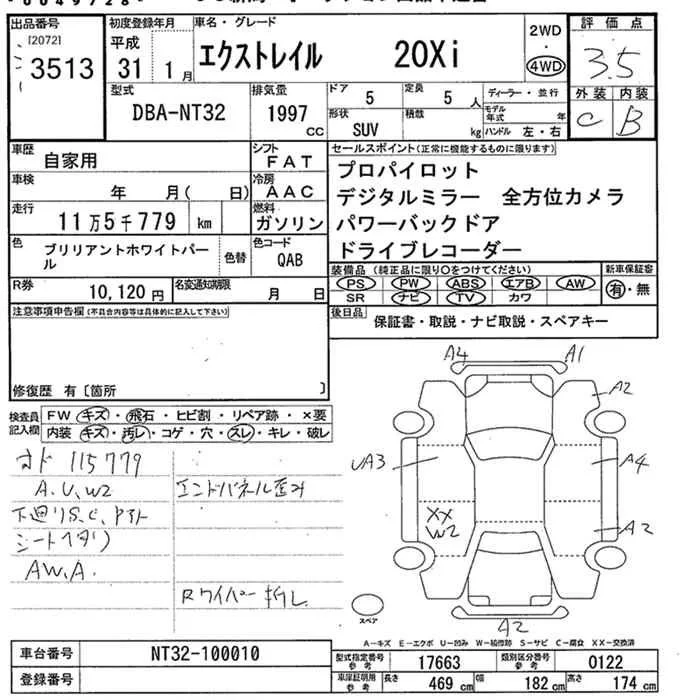 出品番号
[2072]
3513
初度登録年月
平成
31 1月
車名・グレード
エクストレイル 20Xi
2WD
・
4WD
評価点
3.5
型式
DBA-NT32
排気量
1997
CC
ドア
5
定員
5 人
形状
SUV
積載
kg
ディーラー・並行
モデル年式 年
ハンドル 左・右
外装 内装
C B
車歴
自家用
シフト
FAT
車検
年 月( 日)
冷房
AAC
走行
11万5千779 km
燃料
ガソリン
色
ブリリアントホワイトパール
色替
色コード
QAB
R券
10,120円
名変通知期限
月 日
セールスポイント(正常に機能するものに限ります)
プロパイロット
デジタルミラー 全方位カメラ
パワーバックドア
ドライブレコーダー
装備品(純正品に限り○をつけてください)
PS PW ABS エアB AW
SR ナビ TV カワ
新車保証書
有・無
後日品
保証書・取説・ナビ取説・スペアキー
注意事項申告欄(不具合内容等は具体的に記入して下さい)
修復歴 有〔箇所 〕
検査員記入欄
FW キズ・飛石・ヒビ割・リペア跡・×要
内装 キズ・汚レ・コゲ・穴・スレ・キレ・破レ
オド 115779
A.U.W2
下廻りS.C.
シートヘタリ
AW.A.
エンドパネル歪み
Rワイパー折レ
A4 A1
A2
UA3
A4
XX
W2
A2
A2
スペア
A-キズ E-エクボ U-凹み W-補修跡 S-サビ C-腐食 XX-交換済
車台番号
NT32-100010
登録番号
型式指定番号
参考
17663
類別区分番号
参考
0122
車庫証明用
参考
長さ 469 cm 幅 182 cm 高さ 174 cm